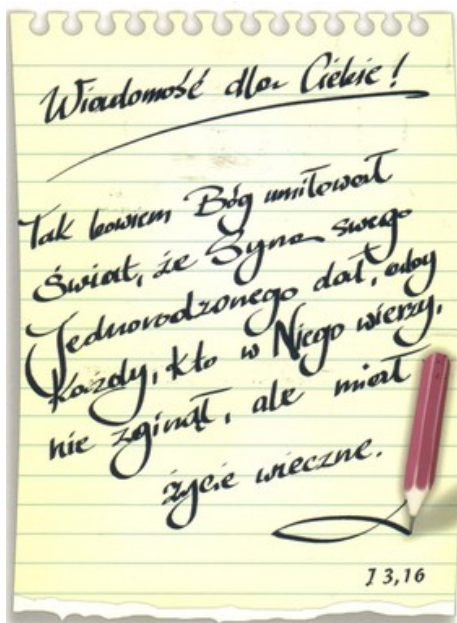 Wiadomość dla Ciebie!
Tak bowiem Bóg umiłował
Świat, że Syna swego
Jednorodzonego dał, aby
Każdy, kto w Niego wierzy,
nie zginął, ale miał
życie wieczne.
J 3,16